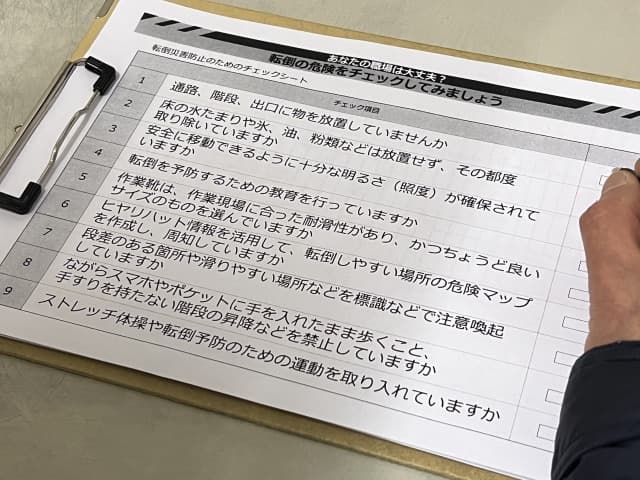 あなたの職場は大丈夫？
転倒の危険をチェックしてみましょう
転倒災害防止のためのチェックシート
チェック項目
1 通路、階段、出口に物を放置していませんか
2 床の水たまりや氷、油、粉類などは放置せず、その都度
取り除いていますか
3 安全に移動できるように十分な明るさ（照度）が確保されて
いますか
4 転倒を予防するための教育を行っていますか
5 作業靴は、作業現場に合った耐滑性があり、かつちょうど良い
サイズのものを選んでいますか
6 ヒヤリハット情報を活用して、転倒しやすい場所の危険マップ
を作成し、周知していますか
7 段差のある箇所や滑りやすい場所などを標識などで注意喚起
していますか
8 ながらスマホやポケットに手を入れたまま歩くこと、
手すりを持たない階段の昇降などを禁止していますか
9 ストレッチ体操や転倒予防のための運動を取り入れていますか